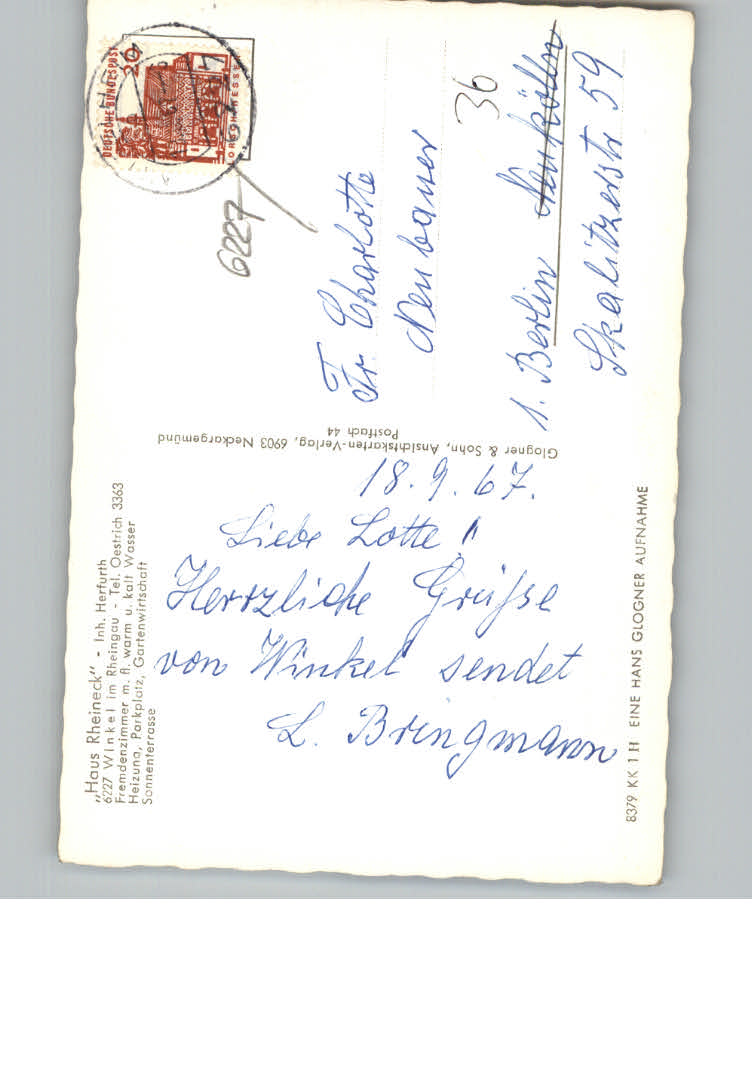 „Haus Rheineck" - Inh. Herfurth
6227 Winkel im Rheingau - Tel. Oestrich 3363
Fremdenzimmer m. fl. warm u. kalt Wasser
Heizung, Parkplatz, Gartenwirtschaft
Sonnenterrasse
18.9.67.
Liebe Lotte!
Herzliche Grüße
von Winkel sendet
L. Bringmann
8379 KK 1 H EINE HANS GLOGNER AUFNAHME
Glogner & Sohn, Ansichtskarten-Verlag, 6903 Neckargemünd
Postfach 44
DEUTSCHE BUNDESPOST
20
LORSCH/HESSEN
6227
Fr. Charlotte
Neubauer
36
1. Berlin Neukölln
Skalitzerstr 59